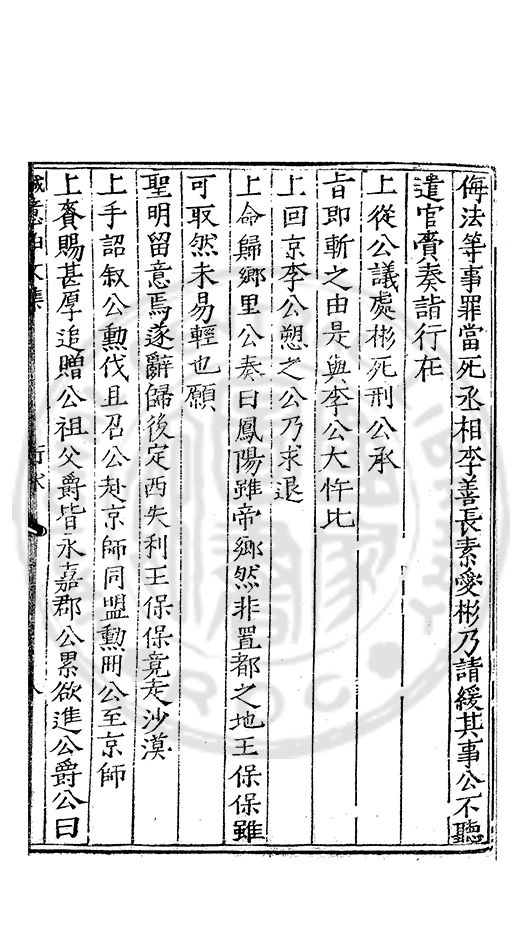 侮法等事罪當死丞相李善長素愛彬乃請緩其事公不聽
遣官賫奏詣行在
上從公議處彬死刑公承
旨即斬之由是與李公大忤比
上回京李公愬之公乃求退
上命歸鄉里公奏曰鳳陽雖帝鄉然非置都之地王保保雖
可取然未易輕也願
聖明留意焉遂辭歸後定西失利王保保竟走沙漠
上手詔敘公勳伐且召公赴京師同盟勳冊公至京師
上賚賜甚厚追贈公祖父爵皆永嘉郡公累欲進公爵公曰
誠意伯文集 行狀 八